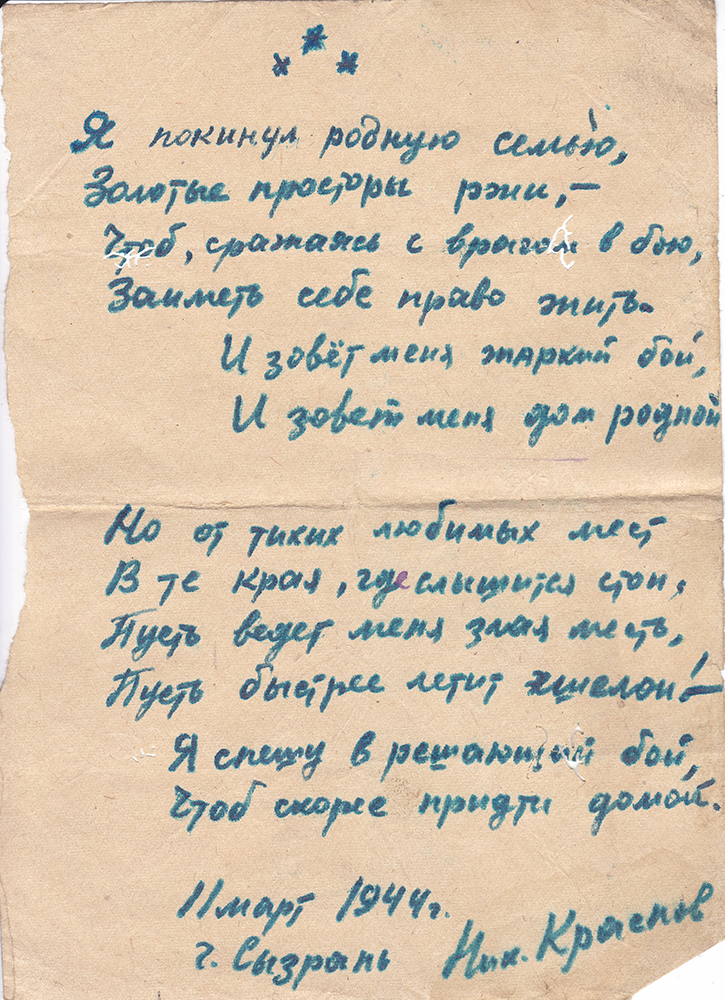 * * *
Я покинул родную семью,
Золотые просторы ржи,–
Чтоб, сражаясь с врагом в бою,
Заиметь себе право жить.
И зовёт меня жаркий бой,
И зовет меня дом родной
Но от тихих любимых мест
В те края, где слышится стон,
Пусть ведет меня злая месть,
Пусть быстрее летит эшелон! –
Я спешу в решающий бой,
Чтоб скорее придти домой.
11 март 1944 г.
г. Сызрань Ник. Краснов